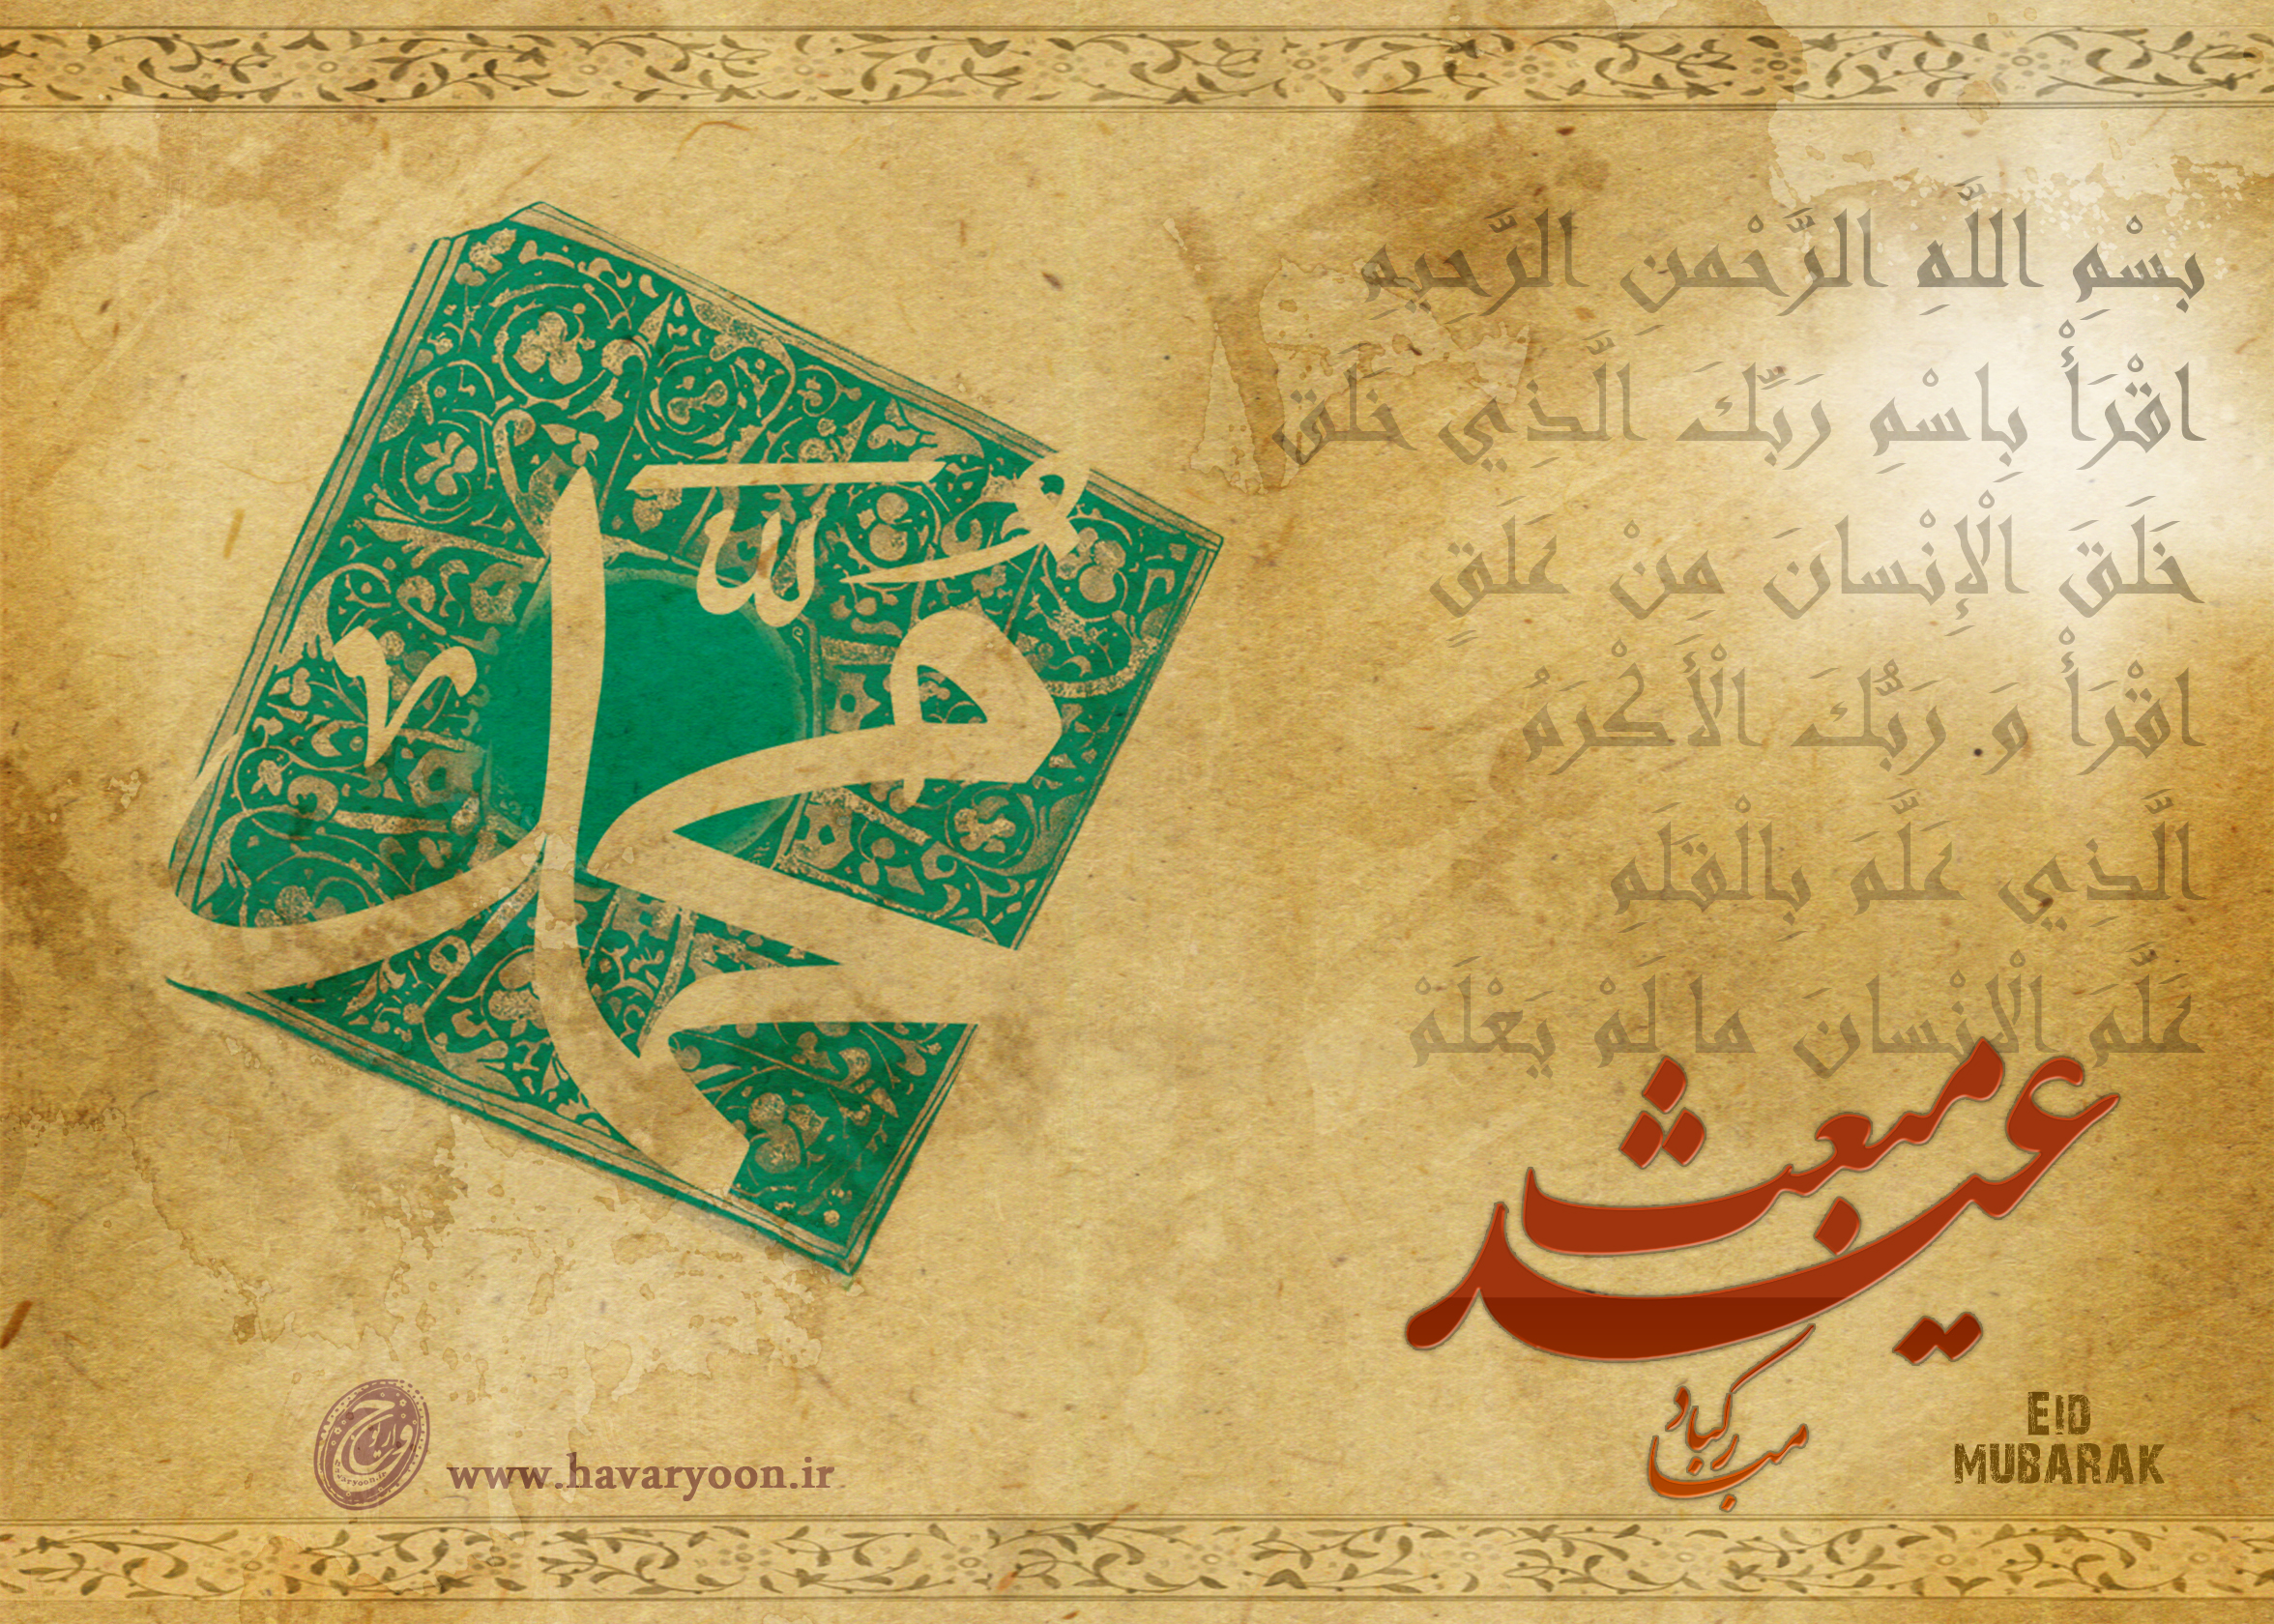 بِسْمِ اللَّهِ الرَّحْمنِ الرَّحيمِ
اقْرَأْ بِاسْمِ رَبِّكَ الَّذِي خَلَقَ
خَلَقَ الْإِنْسانَ مِنْ عَلَقٍ
اقْرَأْ وَ رَبُّكَ الْأَكْرَمُ
الَّذِي عَلَّمَ بِالْقَلَمِ
عَلَّمَ الْإِنْسانَ ما لَمْ يَعْلَمْ
محمد
عید مبعث
مبارکباد
EID
MUBARAK
www.havaryoon.ir
havaryoon.ir